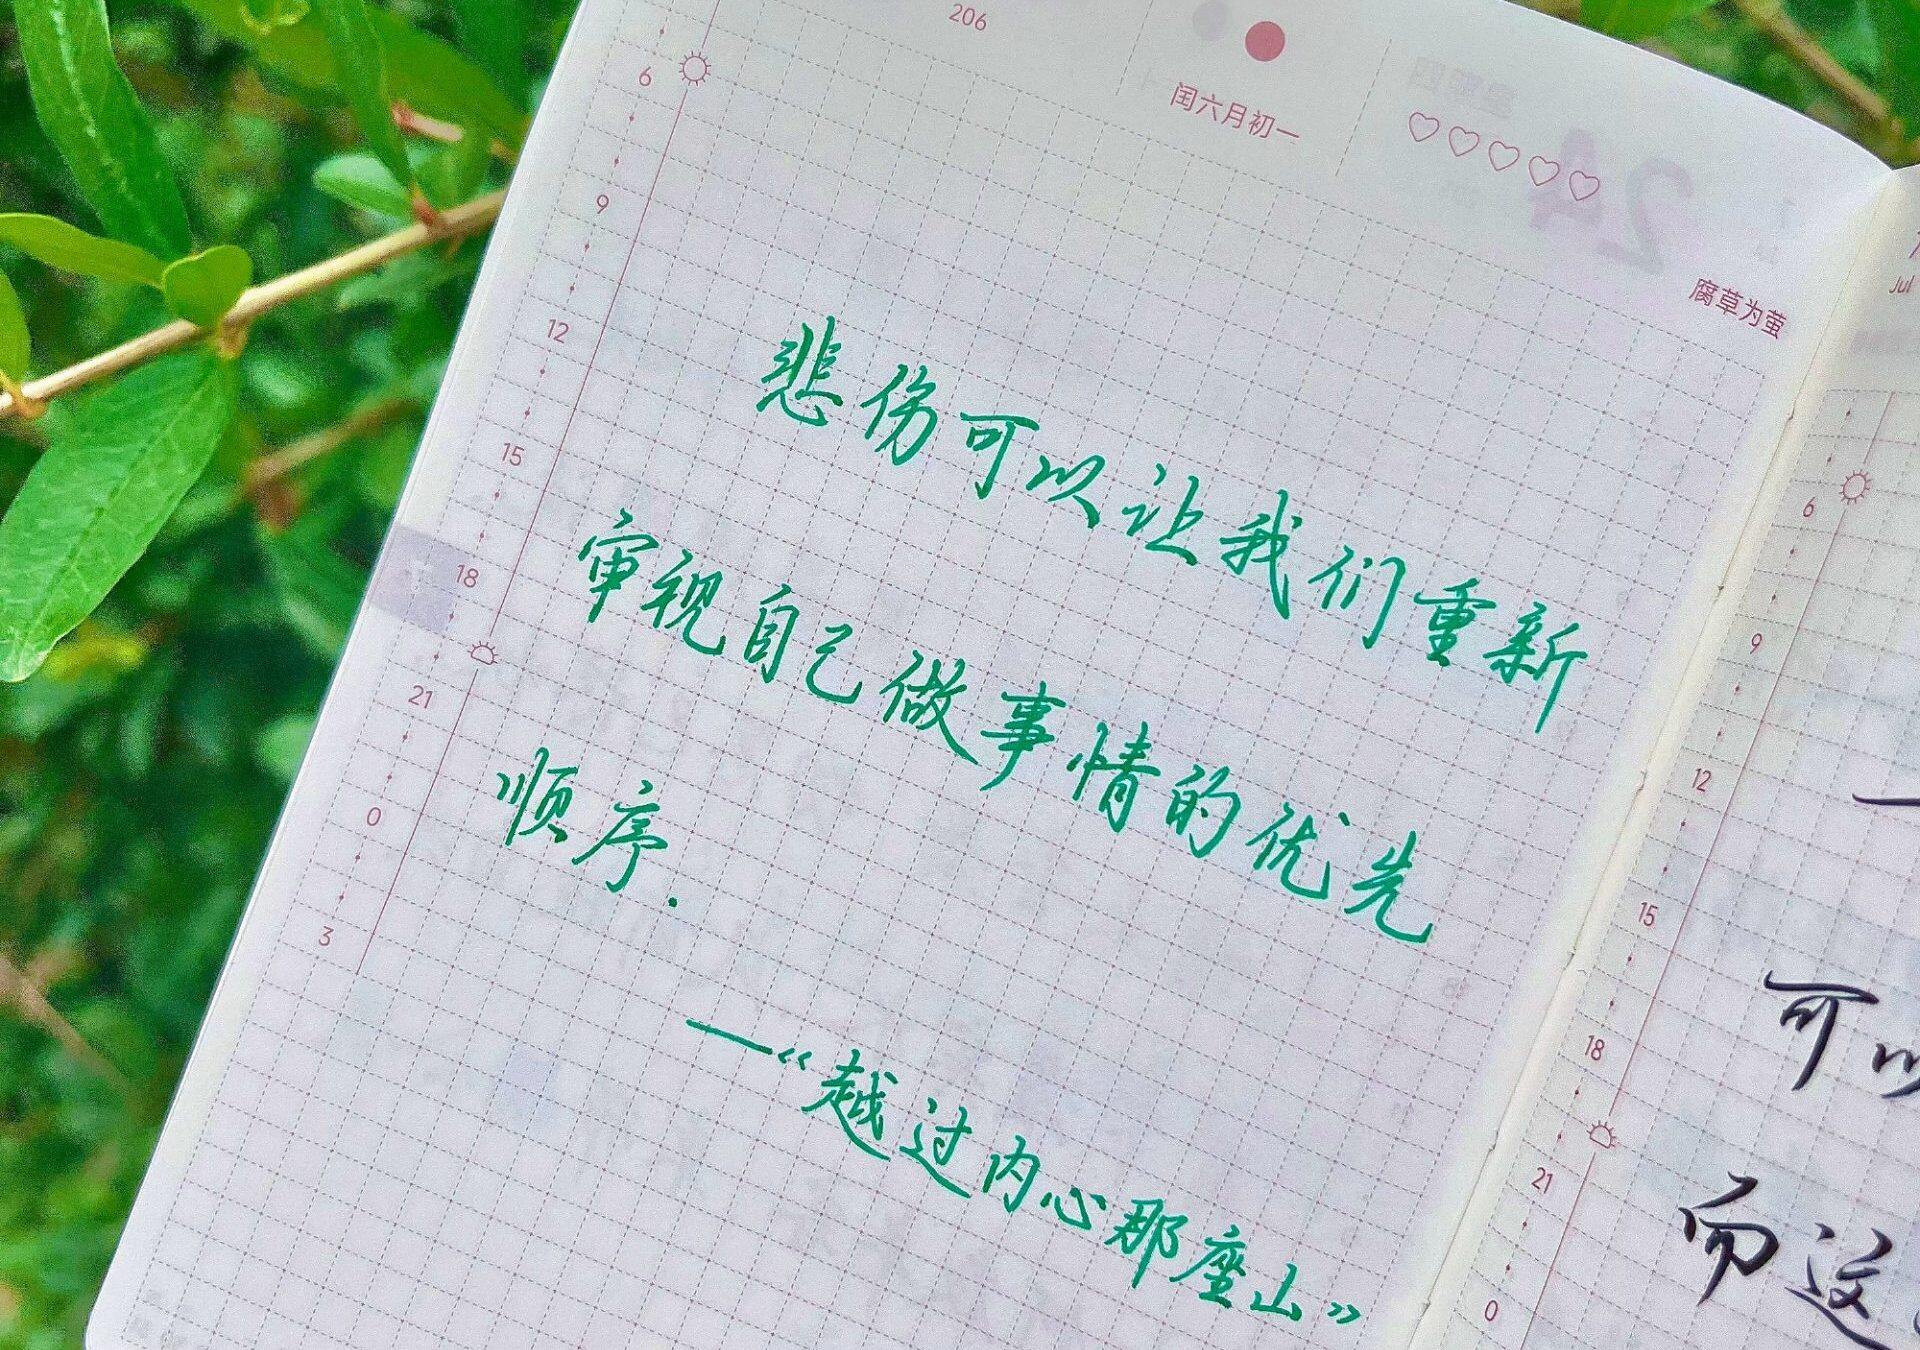 206
闰六月初一
腐草为萤
6
9
12
15
18
21
0
3
悲伤可以让我们重新
审视自己做事情的优先
顺序.
—《越过内心那座山》
Jul
6
9
12
15
18
21
0
可以
而这